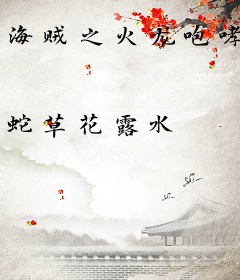 海贼之火龙咆哮
蛇草花露水